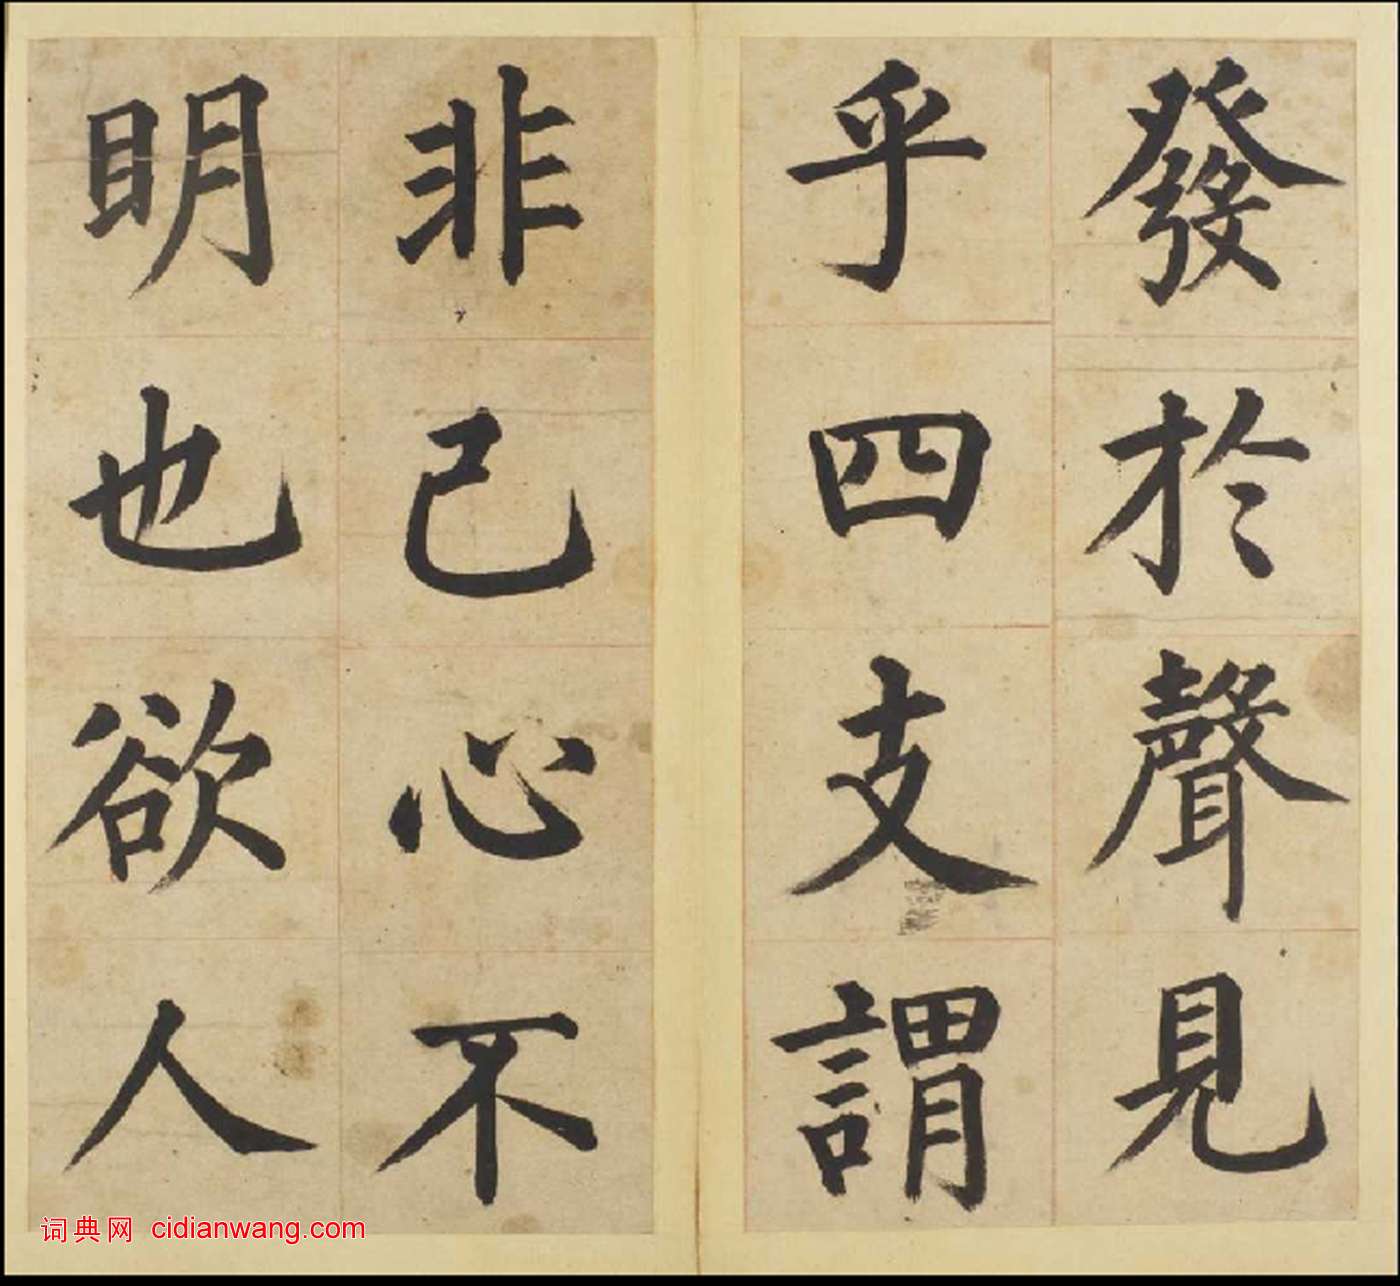 發於聲見
乎四支謂
非己心不
明也欲人
词典网 cidianwang.com